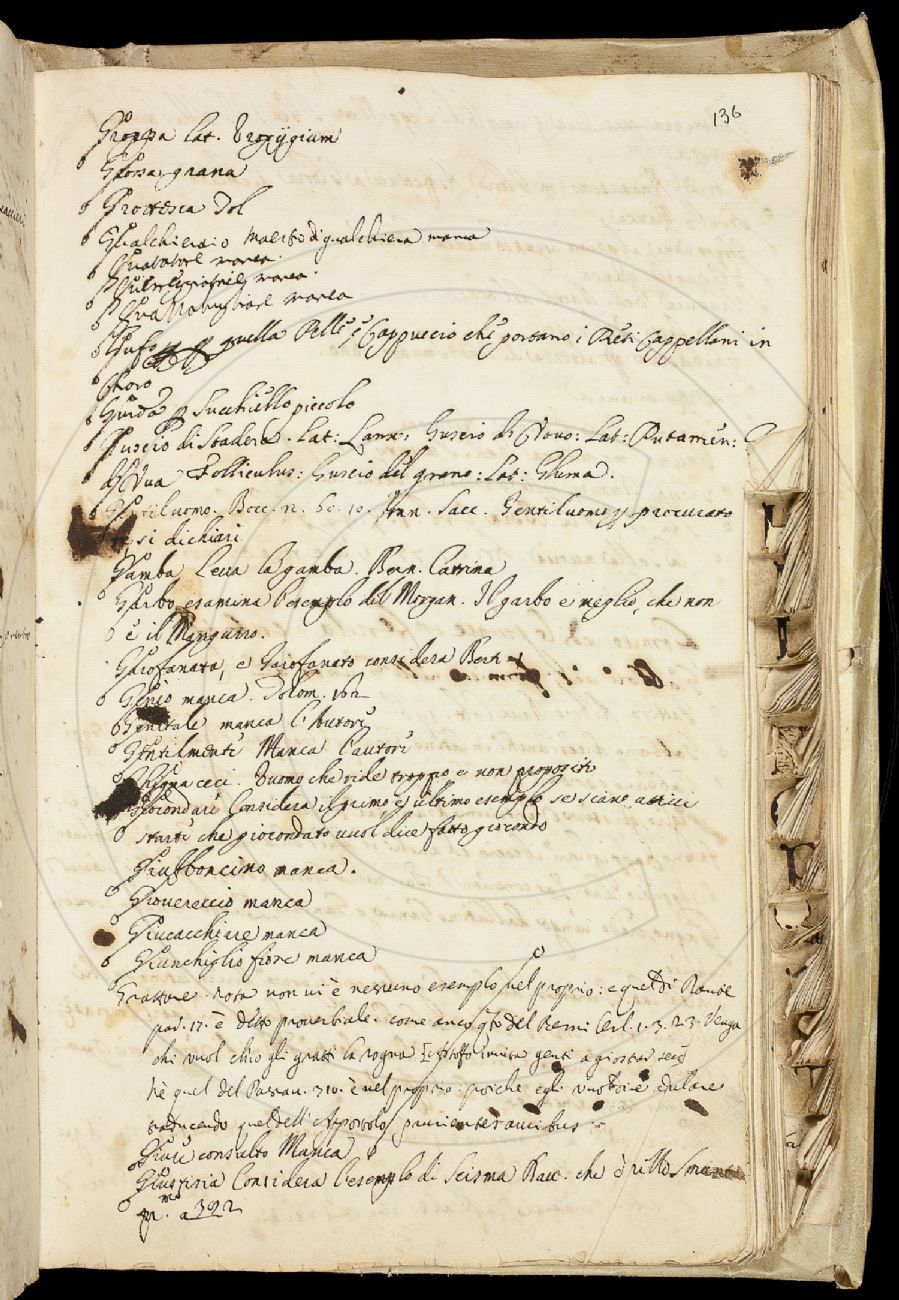 136
Groppa lat. Uropygium
Grossagrana
Grottesca Dol
Gualchieraio maestro di gualchiera manca
manca
manca
manca
Gufo quella Pelle, e Cappuccio che portano i Preti Cappellani in
Choro
Guida p Succhiello piccolo
Guscio di Stadera. Lat: Lanx: Guscio di Vovo: Lat: Putamen:
d'Vua Folliculus: Guscio del grano: Lat: Gluma.
Gentiluomo. Bocc. n. 60. 10. Fran. Sacc. Gentiluomo p procurato
si dichiari
Gamba Lecca la gamba. Bern. Catrina
Garbo esamina l'esemplo del Morgan. Il garbo e meglio, che non
è il Mangurro.
Garofanata, e Garofanato considera
Genio manca. Dolom.
Genitale manca l'Autori
Gentilmente Manca l'autori
Ghigna ceci. Uuomo che ride troppo e non propositi
Giocondare Considera il primo e ultimo esemplo se siano
che giocondato vuol dire fatto giocondo
Giubboncino manca.
Gioveraccio manca
Giucacchiare manca
Giunchiglio fiore manca
Grattare. nota non vi è nessuno esemplo nel proprio: e quel di Dante
par. 17. è detto proverbiale. come anco qto del Berni Orl. 1. 3. 23. Venga
chi vuol chio gli gratti la rogna genti a giostrar
Nè quel del Passav. 310. è nel proprio: poiche egli
traducendo quel dell'Apostolo, prurientes auribus
Giure consulto Manca
Giustizia Considera l'esemplo di Scisma Rau. che è
a 392